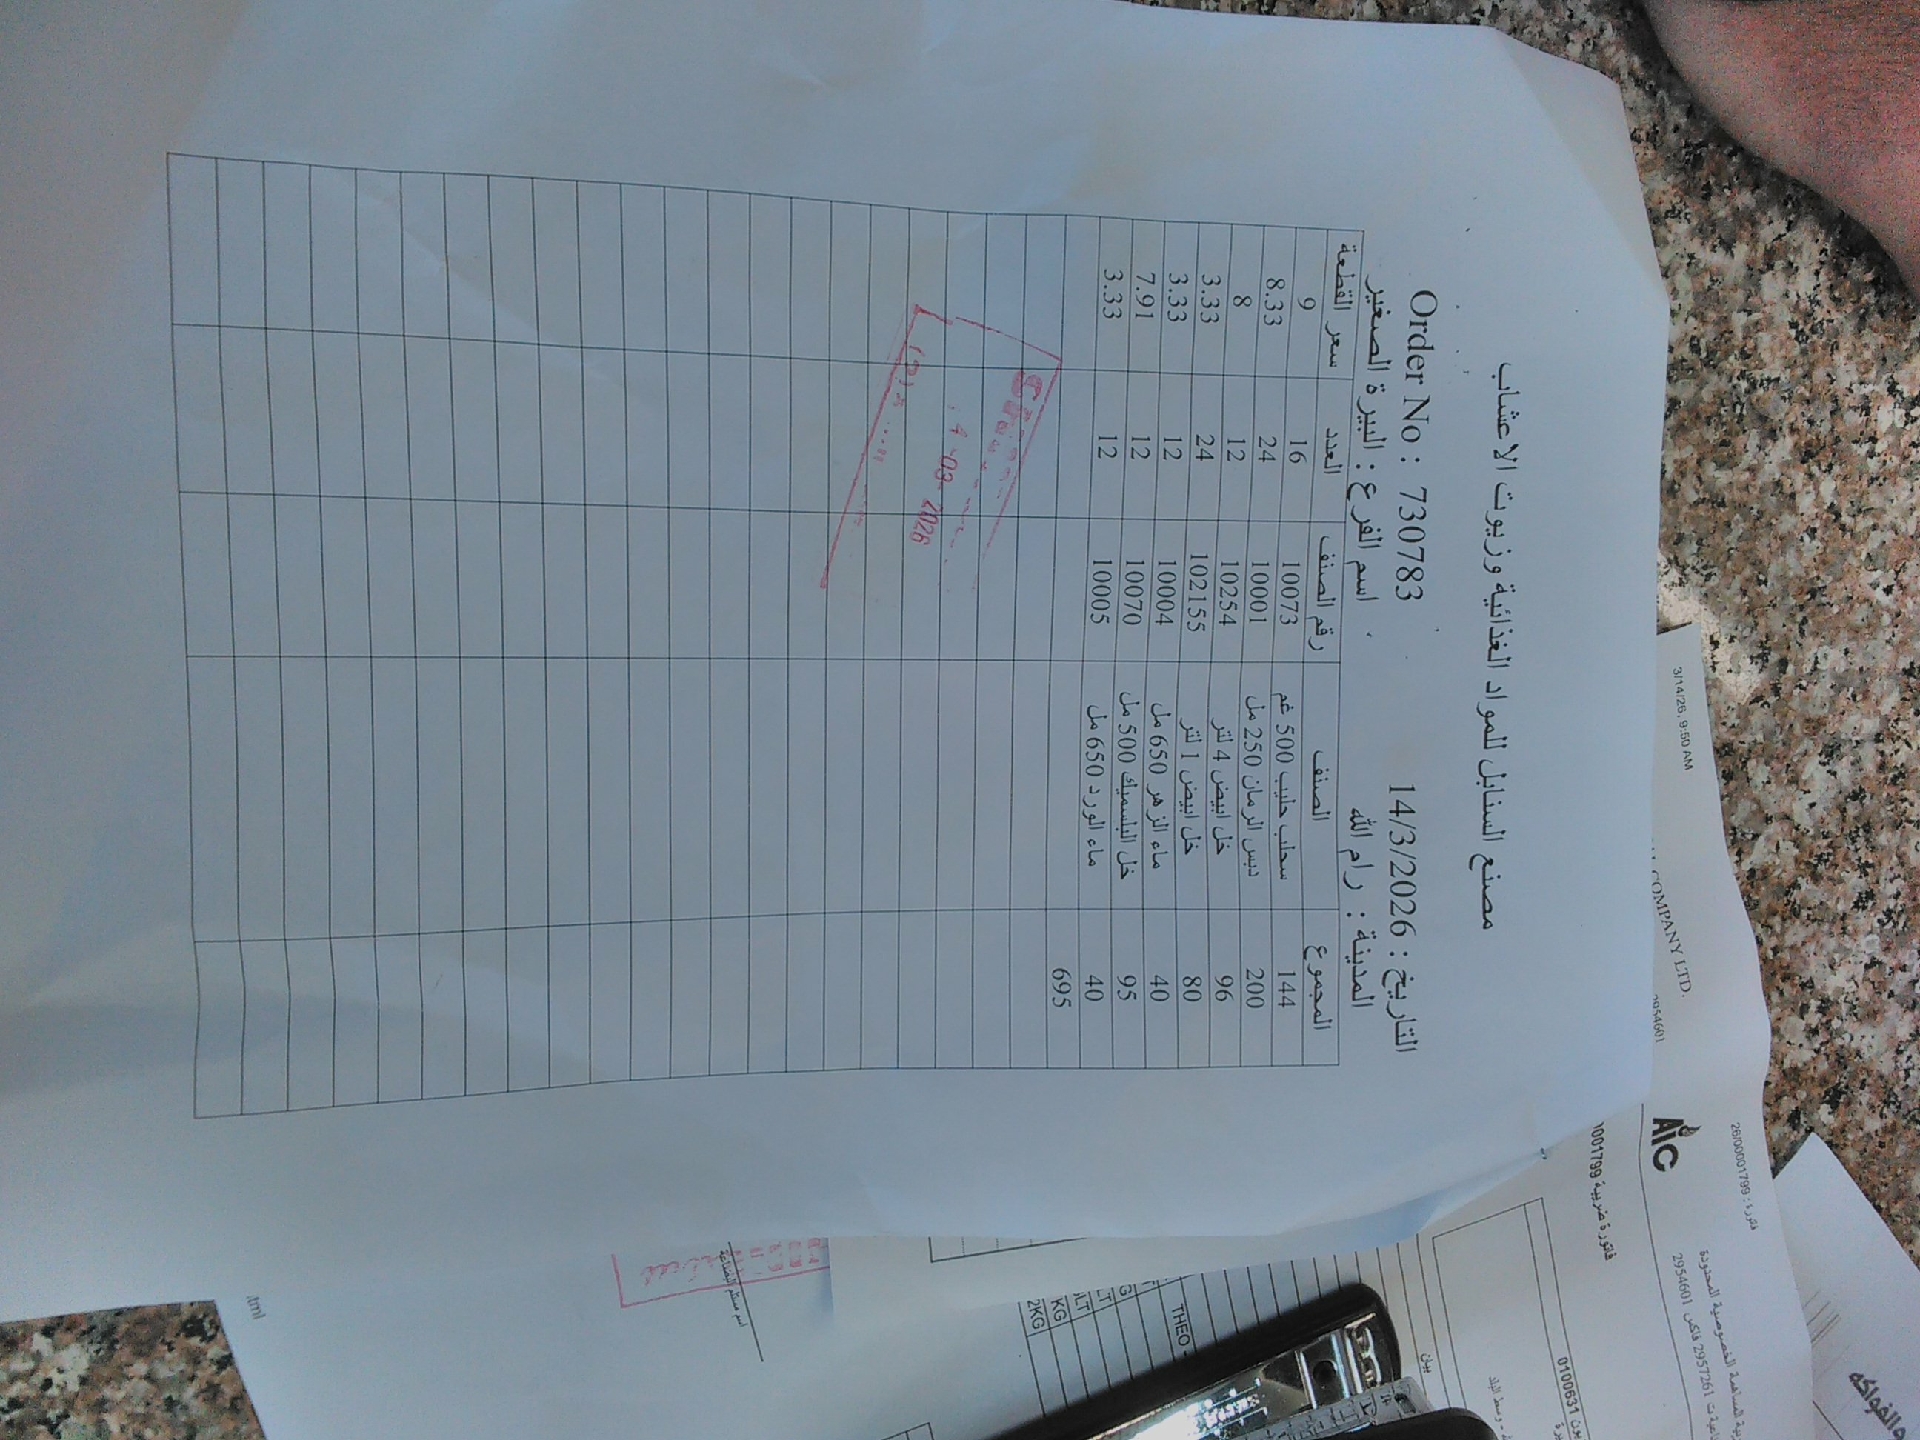 مصنع السنابل للمواد الغذائية وزيوت الاعشاب
Order No : 730783 التاريخ : 14/3/2026
اسم الفرع : البيرة الصغير المدينة : رام الله
سعر القطعة العدد رقم الصنف الصنف المجموع
9 16 10073 سحلب حليب 500 غم 144
8.33 24 10001 دبس الرمان 250 مل 200
8 12 10254 خل ابيض 4 لتر 96
3.33 24 102155 خل ابيض 1 لتر 80
3.33 12 10004 ماء الزهر 650 مل 40
7.91 12 10070 خل البلسميك 500 مل 95
3.33 12 10005 ماء الورد 650 مل 40
695
03- 2026
3/14/26, 9:50 AM
COMPANY LTD.
2954601
AIC
فاتورة ضريبية 1001799
فاكس 2957261 2954601
0100631
بيان
THEO -
LT
KG
2KG
اسم مستلم البضاعة
الفواكه